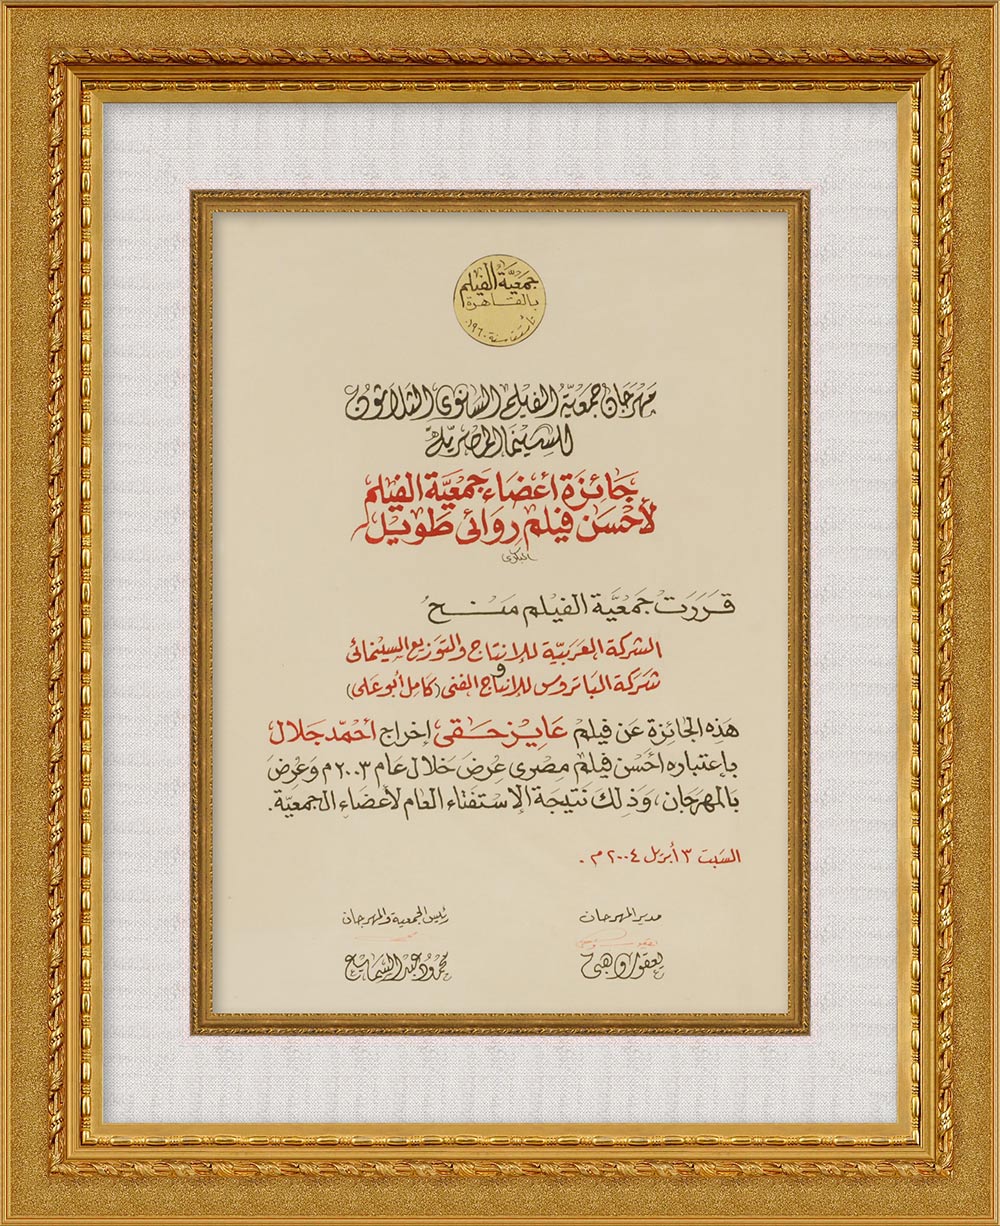 جمعية الفيلم
بالقاهرة
تأسست سنة ١٩٦٠
مهرجان جمعية الفيلم السنوى الثلاثون
للسينما المصرية
جائزة أعضاء جمعية الفيلم
لأحسن فيلم روائى طويل
قررت جمعية الفيلم منح
الشركة العربية للإنتاج والتوزيع السينمائى
و
شركة الباتروس للإنتاج الفنى (كامل أبو على)
هذه الجائزة عن فيلم عايز حقى إخراج أحمد جلال
بإعتباره أحسن فيلم مصرى عرض خلال عام ٢٠٠٣م وعرض
بالمهرجان، وذلك نتيجة الإستفتاء العام لأعضاء الجمعية.
السبت ٣ أبريل ٢٠٠٤م.
مدير المهرجان
يعقوب وهبى
رئيس الجمعية والمهرجان
محمود عبد السميع